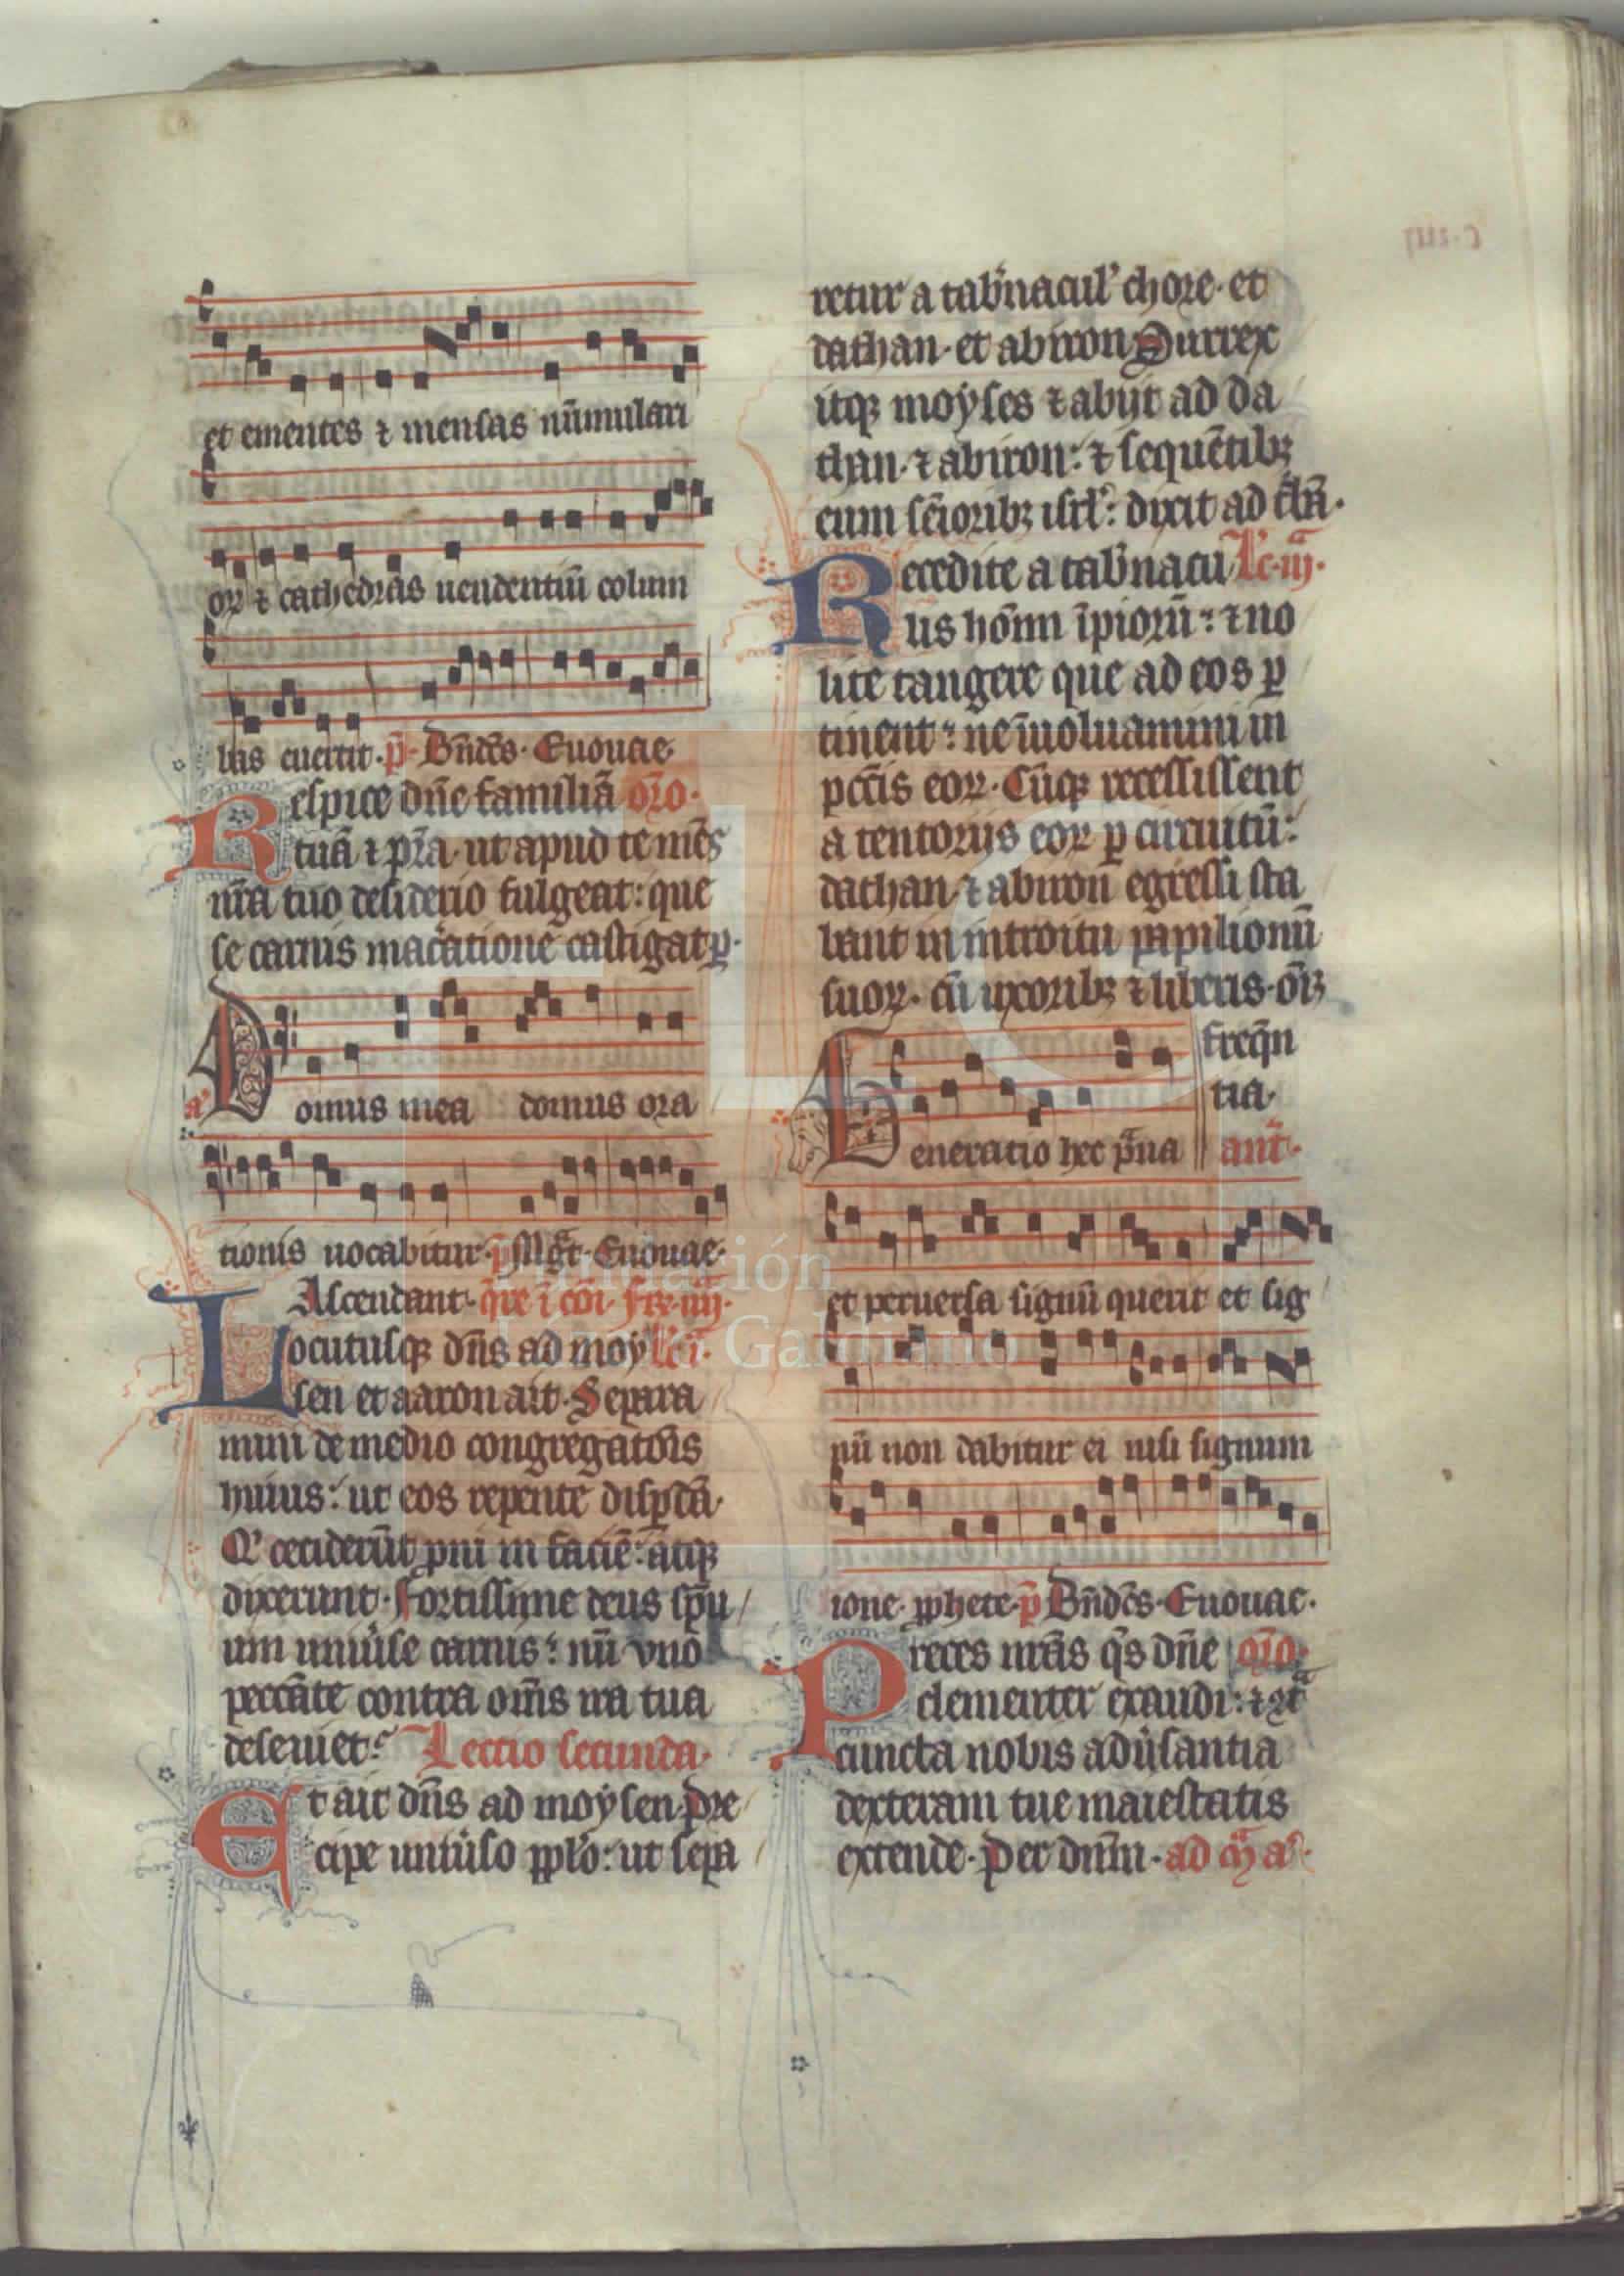 c·iiij
et ementes ⁊ mensas nūmulari
oꝝ ⁊ cathedras uendentiū colum
bas euertit · p̄ · Bn̄dc̄s · Euouae·
Respice dn̄e familiā or̄o·
tuā ⁊ pr̄a · ut apud te mēs
nr̄a tuo desiderio fulgeat : que
se carnis mac̄atione castigat ꝑ·
a᷎ Domus mea domus ora
tionis uocabitur · p̄s Mgt̄ · Euouae·
Ascendant · qr̄e ī cōi · fr̄ · iiij·
Locutusqꝫ dn̄s ad moy lc̄ · i·
sen et aaron ait · Separa
mini de medio congregatōis
huius : ut eos repente disp̄dā·
Qi ceciderūt ꝓni in faciē : atqꝫ
dixerunt · fortissime deus sp̄u
um uniūse carnis : nū vno
peccāte contra om̄s ira tua
deseuiet : Lectio secunda·
Et ait dn̄s ad moysen · Pre
cipe uniūso pplo : ut sepa
retur a tab̄nacul' chore · et
dathan · et abiron Surrex
itqꝫ moyses ⁊ abijt ad da
than · ⁊ abiron : ⁊ sequētibꝫ
eum sēioribꝫ isrl' : dixit ad tb̄ā·
Recedite a tab̄nacu Lc̄ · iij·
lis hōinū īpiorū : ⁊ no
lite tangere que ad eos ꝑ
tinent : ne īuoluamini in
pctīs eoꝝ · Cūqꝫ recessissent
a tentorijs eoꝝ ꝑ circuitū :
dathan · ⁊ abiron egressi sta
bant in introitu papilionū
suoꝝ · cū uxoribꝫ ⁊ liberis · om̄ꝫ
freqn̄
tia·
Generatio hec p̄ua ant̄·
et peruersa signū querit et sig
nū non dabitur ei nisi signum
ione ꝓphete · p̄ Bn̄dc̄s · Euouae·
Preces nr̄as qs̄ dn̄e or̄o·
clementer exaudi : ⁊ ꝯt̄
cuncta nobis adūsantia
dexteram tue maiestatis
extende · Per dnm̄ · ad m̄ a᷎·
Fundación
Lázaro Galdiano